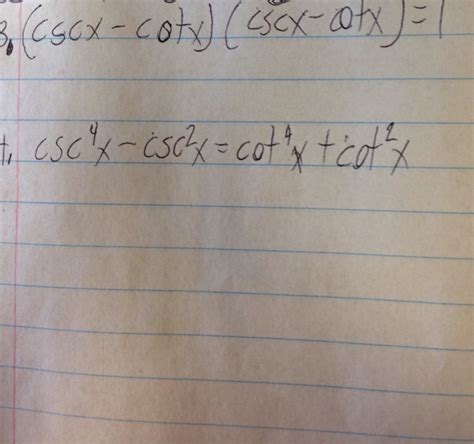 3. (cscx - cotx)(cscx - cotx) = 1
csc⁴x - csc²x = cot⁴x + cot²x